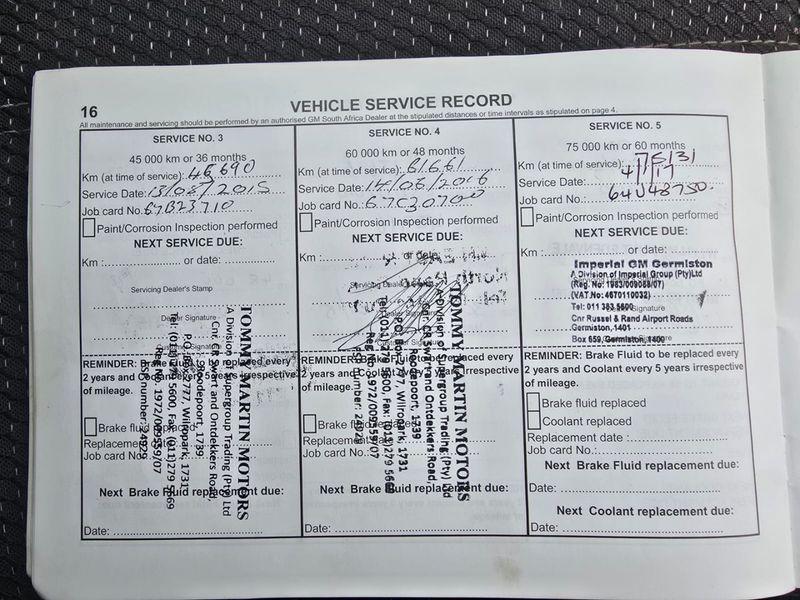 16
VEHICLE SERVICE RECORD
All maintenance and servicing should be performed by an authorised GM South Africa Dealer at the stipulated distances or time intervals as stipulated on page 4.
SERVICE NO. 3
45 000 km or 36 months
Km (at time of service): 46 690
Service Date: 13/05/2015
Job card No.: 67B23710
Paint/Corrosion Inspection performed
NEXT SERVICE DUE:
Km : or date:
Servicing Dealer's Stamp
Dealer Signature
Customer Signature
REMINDER: Brake Fluid to be replaced every
2 years and Coolant every 5 years irrespective
of mileage.
Brake fluid replaced
Replacement date
Job card No.:
Next Brake Fluid replacement due:
Date:
TOMMY MARTIN MOTORS
A Division of Supergroup Trading (Pty) Ltd
Cnr. CR Swart and Ontdekkers Road,
Roodepoort, 1739
P.O. Box 5777, Wilropark, 1731
Tel: (011) 279 5600, Fax: (011) 279 5669
Reg. No. 1972/009559/07
24929
SERVICE NO. 4
60 000 km or 48 months
Km (at time of service): 61661
Service Date: 14/06/2016
Job card No.: 67C30700
Paint/Corrosion Inspection performed
NEXT SERVICE DUE:
Km : or date:
Customer Signature
REMINDER: Brake Fluid to be replaced every
2 years and Coolant every 5 years irrespective
of mileage.
Brake fluid
Replacement
Job card No.:
Next Brake Fluid replacement due:
Date:
TOMMY MARTIN MOTORS
A Division of Supergroup Trading (Pty) Ltd
Cnr. CR Swart and Ontdekkers Road,
Roodepoort, 1739
P.O. Box 5777, Wilropark, 1731
Tel: (011) 279 5600, Fax: (011) 279 5669
Reg. No. 1972/009559/07
number: 24929
SERVICE NO. 5
75 000 km or 60 months
Km (at time of service): 75131
Service Date: 4/1/17
Job card No.: 64U48750.
Paint/Corrosion Inspection performed
NEXT SERVICE DUE:
Km : or date:
Imperial GM Germiston
A Division of Imperial Group (Pty)Ltd
(Reg. No: 1983/009088/07)
(VAT No: 4670110032)
Tel: 011 383 5600
Cnr Russel & Rand Airport Roads
Germiston, 1401
Box 659, Germiston, 1400
REMINDER: Brake Fluid to be replaced every
2 years and Coolant every 5 years irrespective
of mileage.
Brake fluid replaced
Coolant replaced
Replacement date :
Job card No.:
Next Brake Fluid replacement due:
Date:
Next Coolant replacement due:
Date: